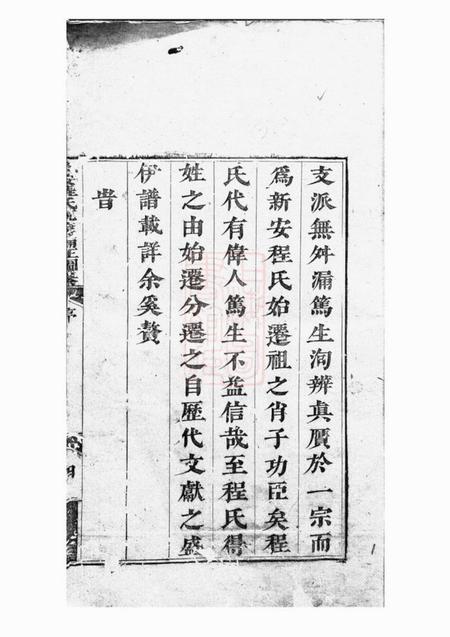 支派無舛漏篤生洵辨眞贋於一宗而
爲新安程氏始遷祖之肖子功臣矣程
氏代有偉人篤生不益信哉至程氏得
姓之由始遷分遷之自歷代文獻之盛
伊譜載詳余奚贅
旹
序